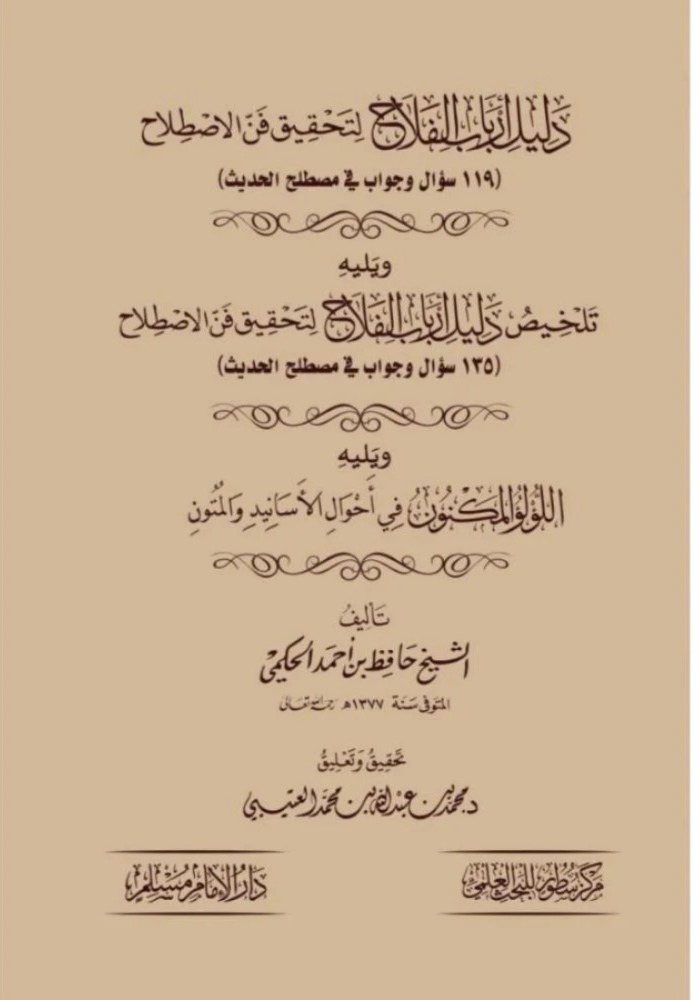 دَلِيلُ أَرْبَابِ الفَلَاحِ لِتَحْقِيقِ فَنِّ الِاصْطِلَاحِ
(١١٩ سؤال وجواب في مصطلح الحديث)
ويَليهِ
تَلْخِيصُ دَلِيلِ أَرْبَابِ الفَلَاحِ لِتَحْقِيقِ فَنِّ الِاصْطِلَاحِ
(١٣٥ سؤال وجواب في مصطلح الحديث)
ويَليهِ
اللُّؤْلُؤُ المَكْنُونُ فِي أَحْوَالِ الأَسَانِيدِ وَالمُتُونِ
تَأْلِيفُ
الشيخ حافظ بن أحمد الحكمي
المتوفى سنة ١٣٧٧هـ رحمه الله تعالى
تَحْقِيقُ وَتَعْلِيقُ
د. محمد بن عبدالله بن محمد العتيبي
مركز سطور للبحث العلمي
دَارُ الإِمَامِ مُسْلِم